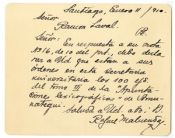 Santiago, Enero 11/910.
Señor
Ramon Laval.
Señor:
En respuesta a su nota
Nº16, de 10 del pte., debo decir
le a Ud. que estan a sus
órdenes en esta secretaría
universitaria los 100 ejs.
del tomo III de las "Apunta
ciones lexicográficas" de Amu
nátegui.
Saluda a Ud. atte.
Rafael Maluenda